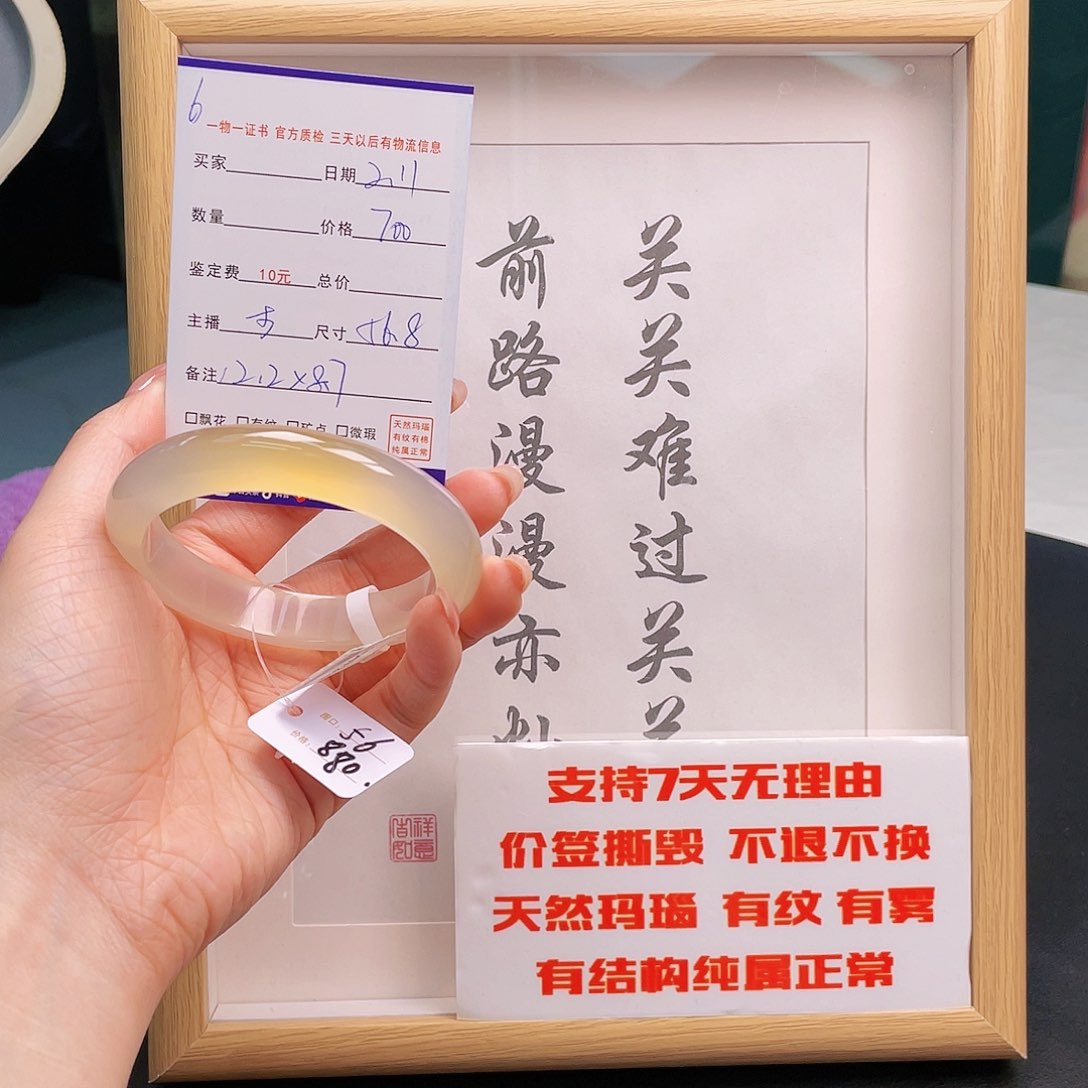 6
一物一证书 官方质检 三天以后有物流信息
买家 日期 2.11
数量 价格 700
鉴定费 10元 总价
主播 尺寸 56.8
备注 12.2×8.7
飘花 有纹 矿点 微瑕
天然玛瑙
有纹有棉
纯属正常
圈口: 56
价格: 880.
关关难过关关
前路漫漫亦
祥意
吉如
支持7天无理由
价签撕毁 不退不换
天然玛瑙 有纹 有雾
有结构纯属正常